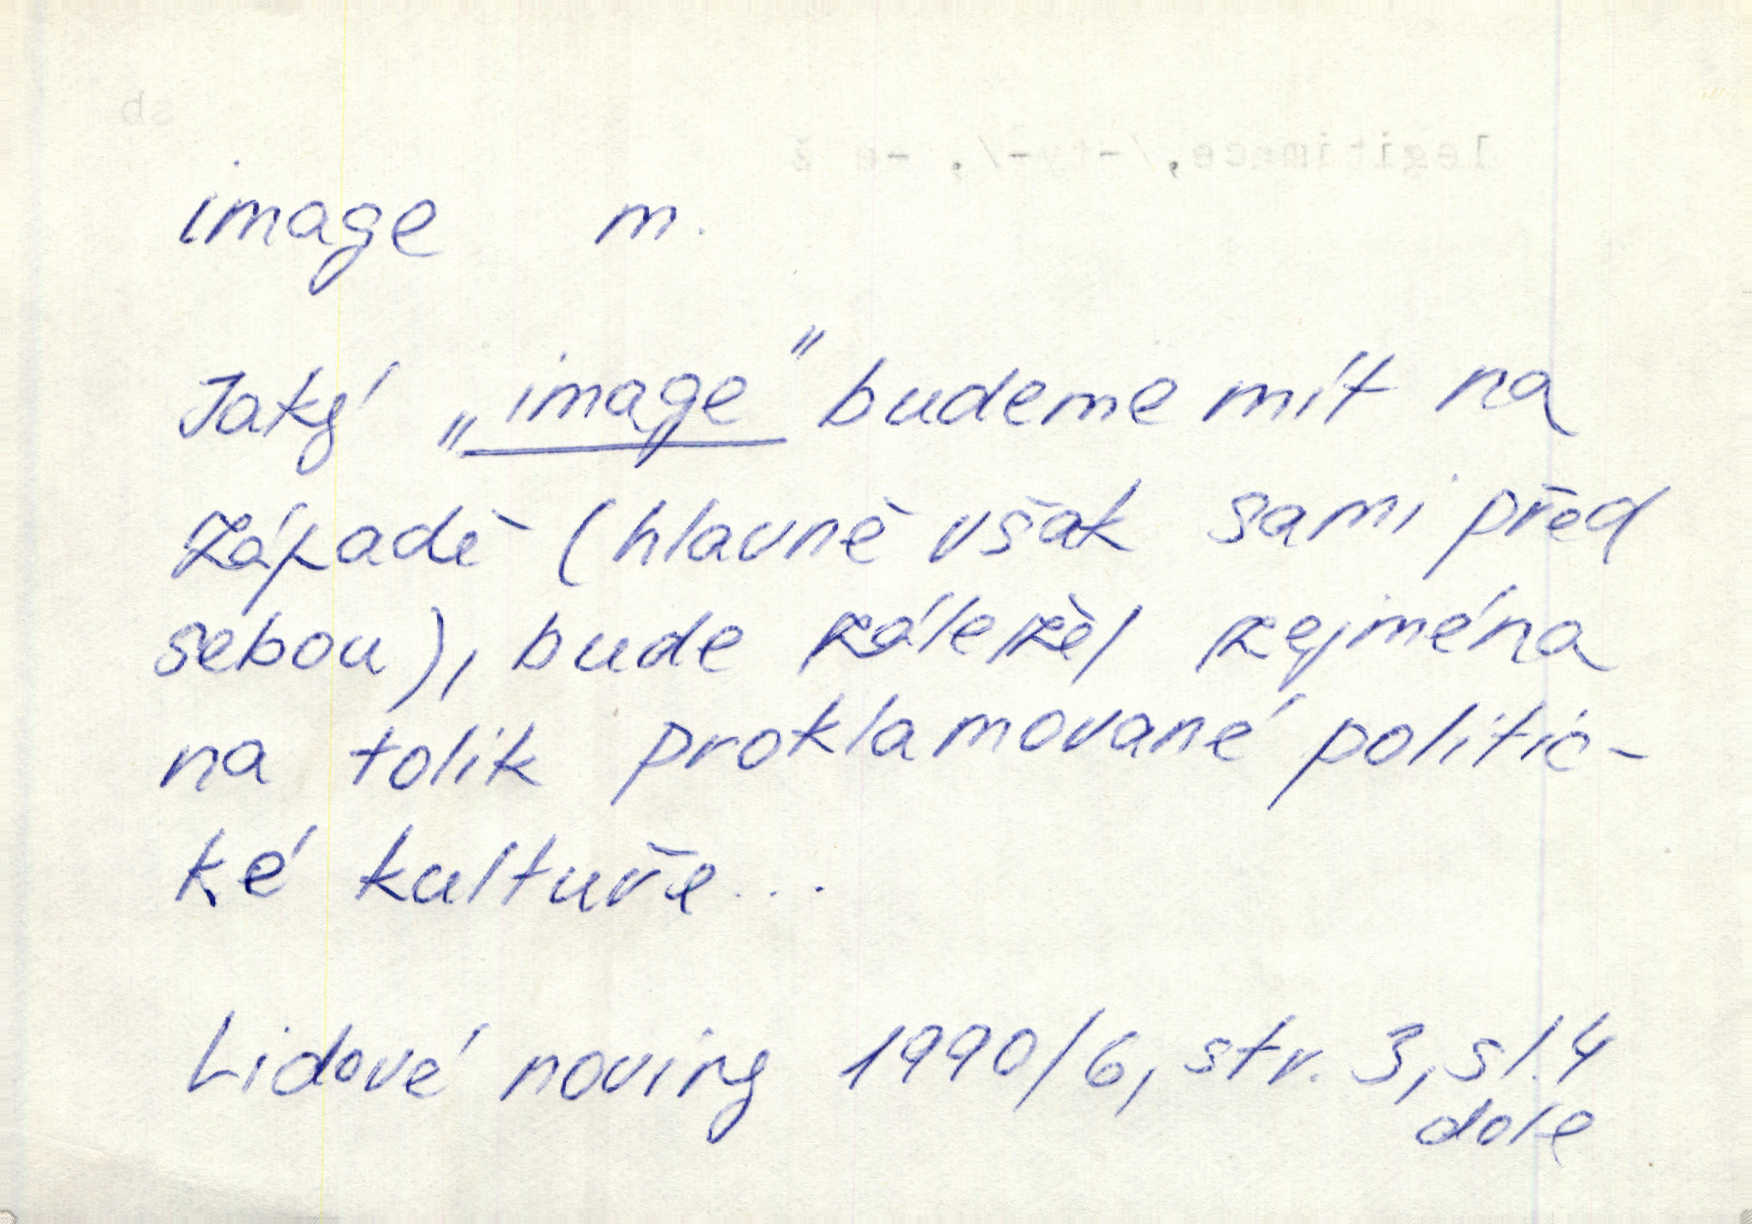 image m.
Jaký „image" budeme mít na
západě (hlavně však sami před
sebou), bude záležel zejména
na tolik proklamované politic-
ké kultuře...
Lidové noviny 1990/6, str. 3, sl. 4
dole